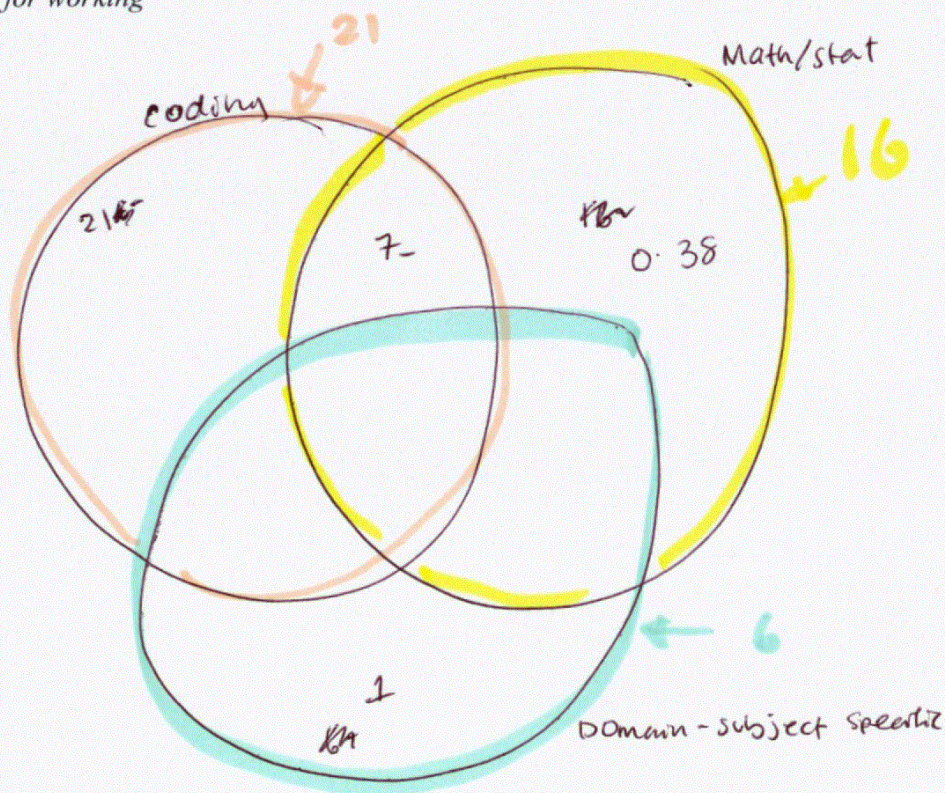 for working
21
Math/stat
coding
16
21
7
0.38
6
1
Domain-subject specific